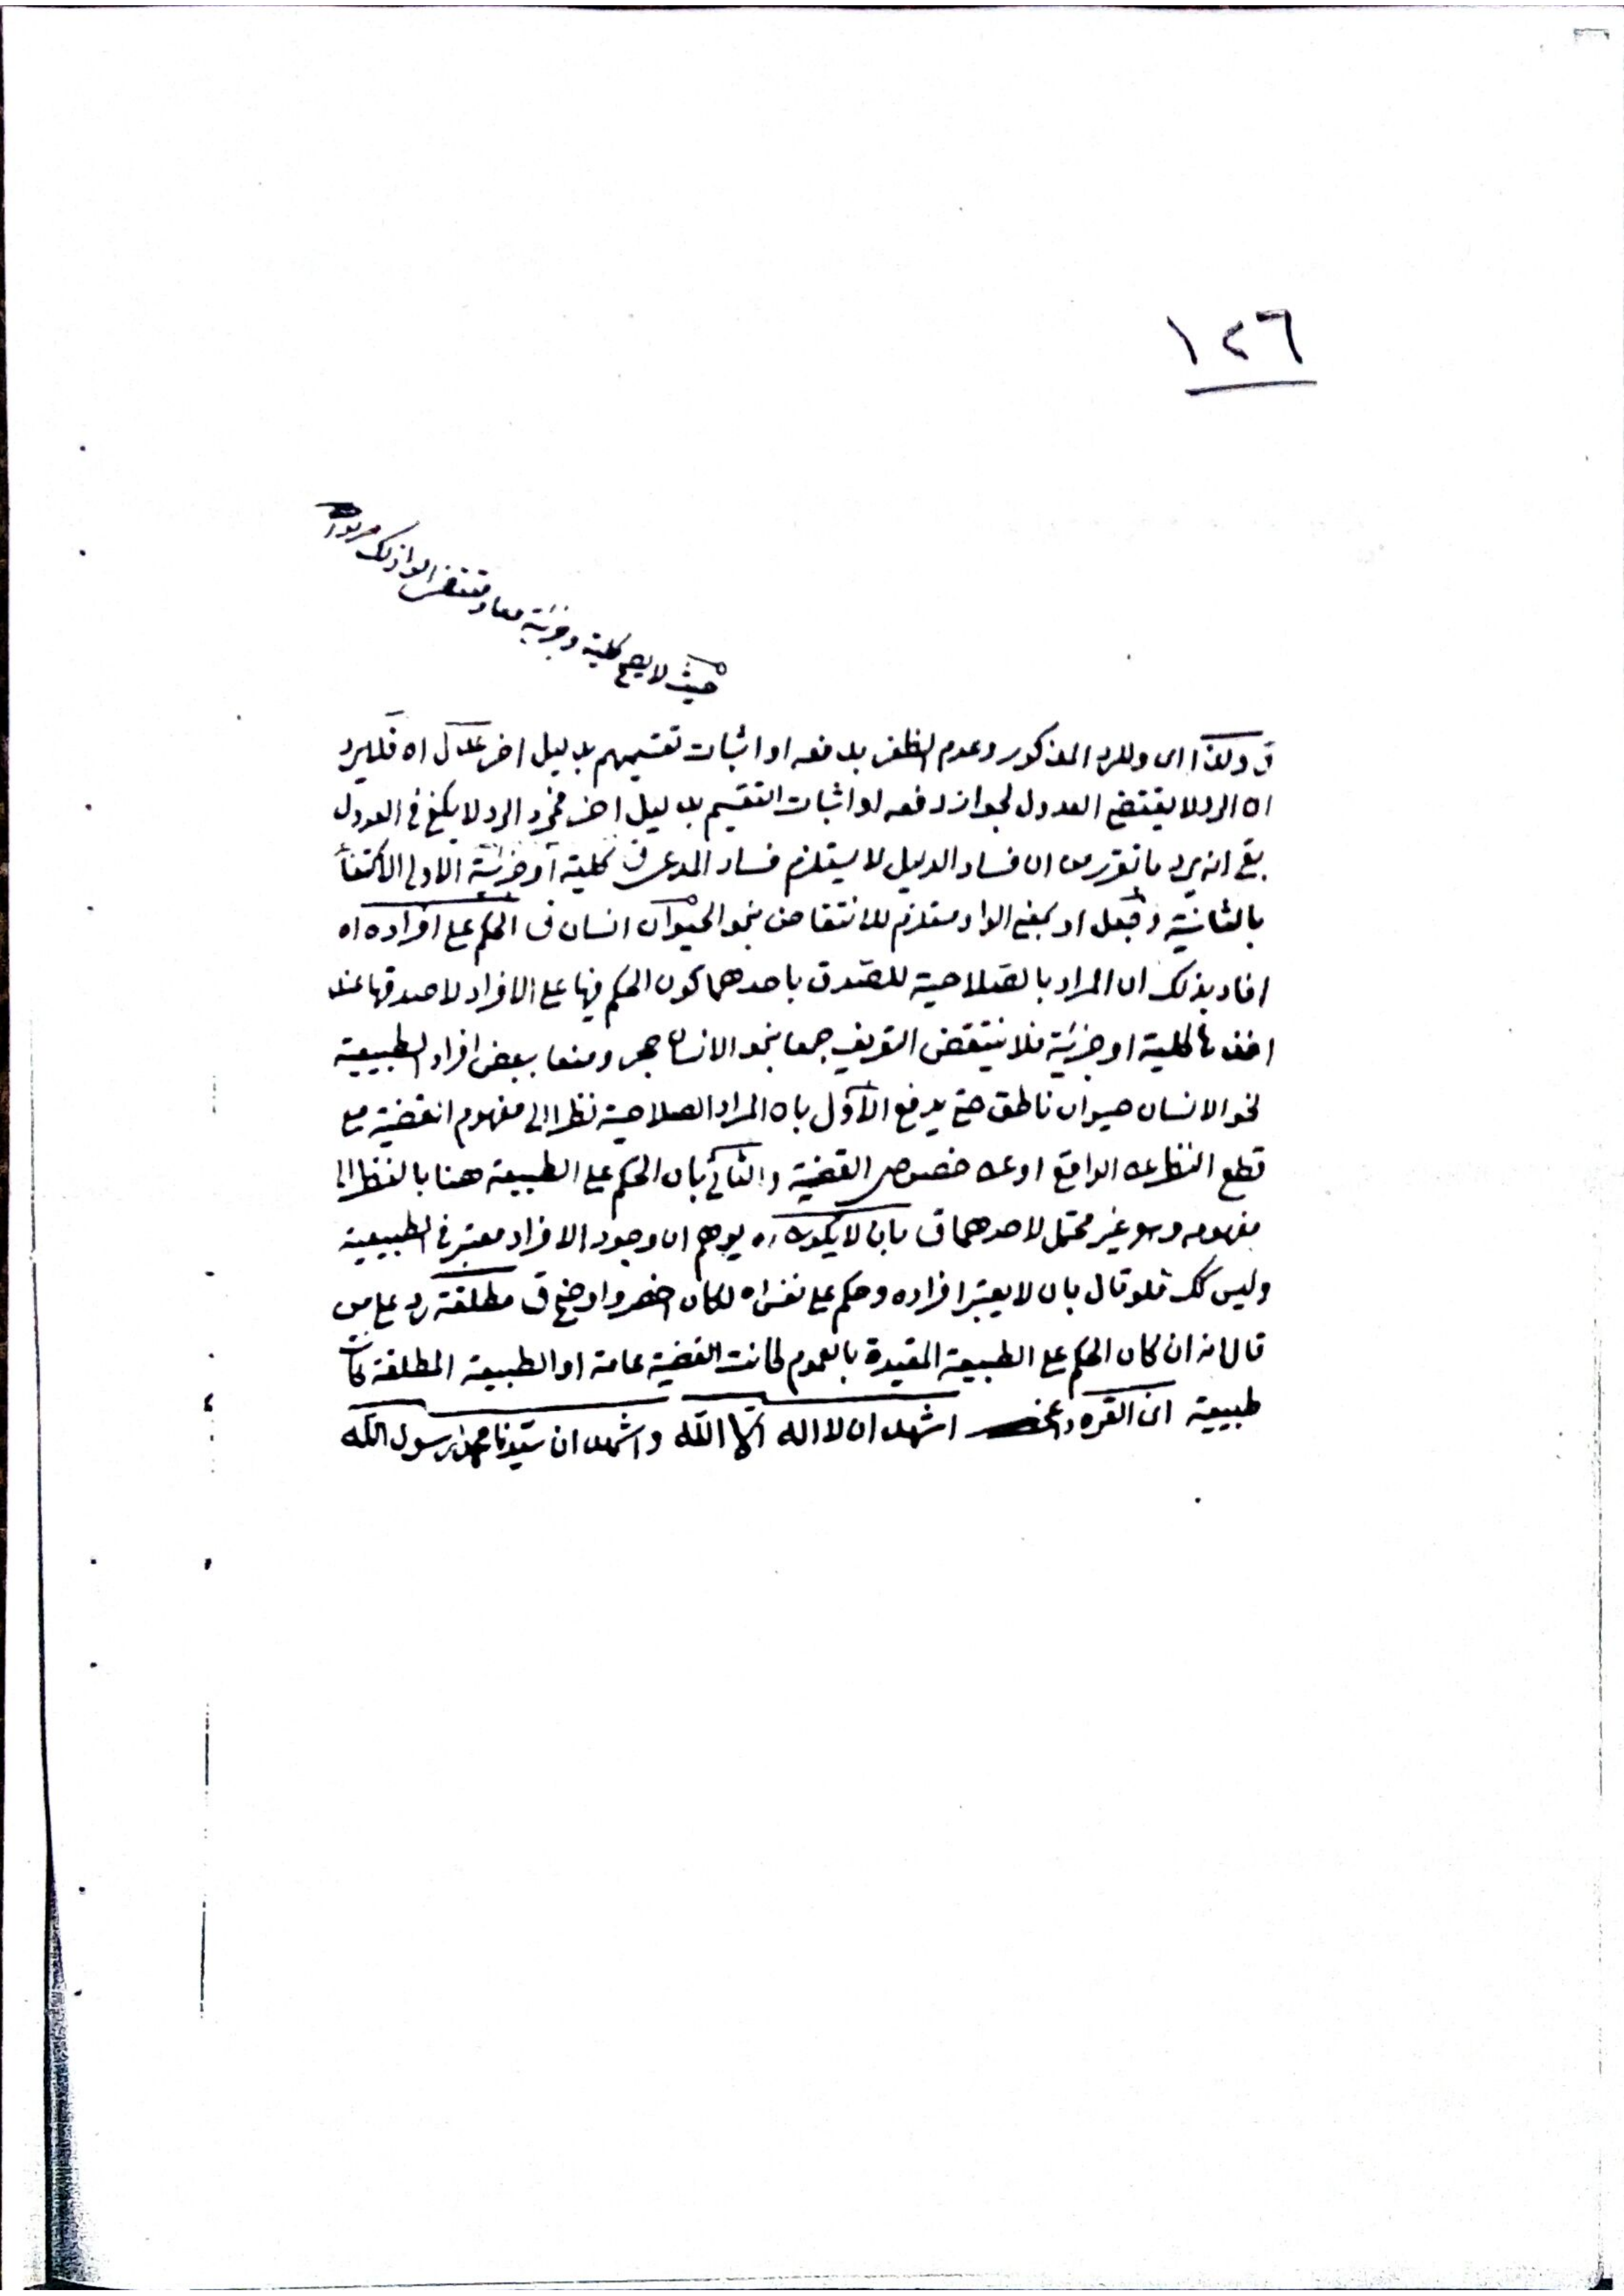 ١٢٦
حيث لا يصح كلية وجزئية معا
ق ولذا اى وللرد المذكور وعدم الظفر بدفعه او اثبات تقسيمهم بدليل اخر عدل اه فلايرد
اه الرد لا يقتضى العدول لجواز دفعه او اثبات التقسيم بدليل اخر فمجرد الرد لا يكفى فى العدول
بقى انه يرد ما تقرر من ان فساد الدليل لا يستلزم فساد المدعى ق كلية او جزئية الاولى الاكتفاء
بالثانية وجعل او بمعنى الواو مستلزم للانتقاض بنحو الحيوان انسان ق الحكم على افراده اه
افاد بذلك ان المراد بالصلاحية للصدق باحدهما كون الحكم فيها على الافراد لا صدقها عند
اخذها كلية او جزئية فلا ينتقض التعريف جمعا بنحو الانسان حجر ومنعا ببعض افراد الطبيعية
نحو الانسان حيوان ناطق حتى يدفع الاول باه المراد الصلاحية نظرا الى مفهوم القضية مع
قطع النظر عن الواقع او عن خصوص القضية والثانى بان الحكم على الطبيعة هنا بالنظر الى
مفهومه وهو غير محتمل لاحدهما ق بان لا يكون اه يوهم ان وجود الافراد معتبر فى الطبيعية
وليس كك فلو قال بان لا يعتبر افراده وحكم على نفس اه لكان اخصر واوضح ق مطلقة رد على من
قال انه ان كان الحكم على الطبيعة المقيدة بالعموم كانت القضية عامة او الطبيعة المطلقة كانت
طبيعية القره داغى اشهد ان لا اله الا الله واشهد ان سيدنا محمدا رسول الله